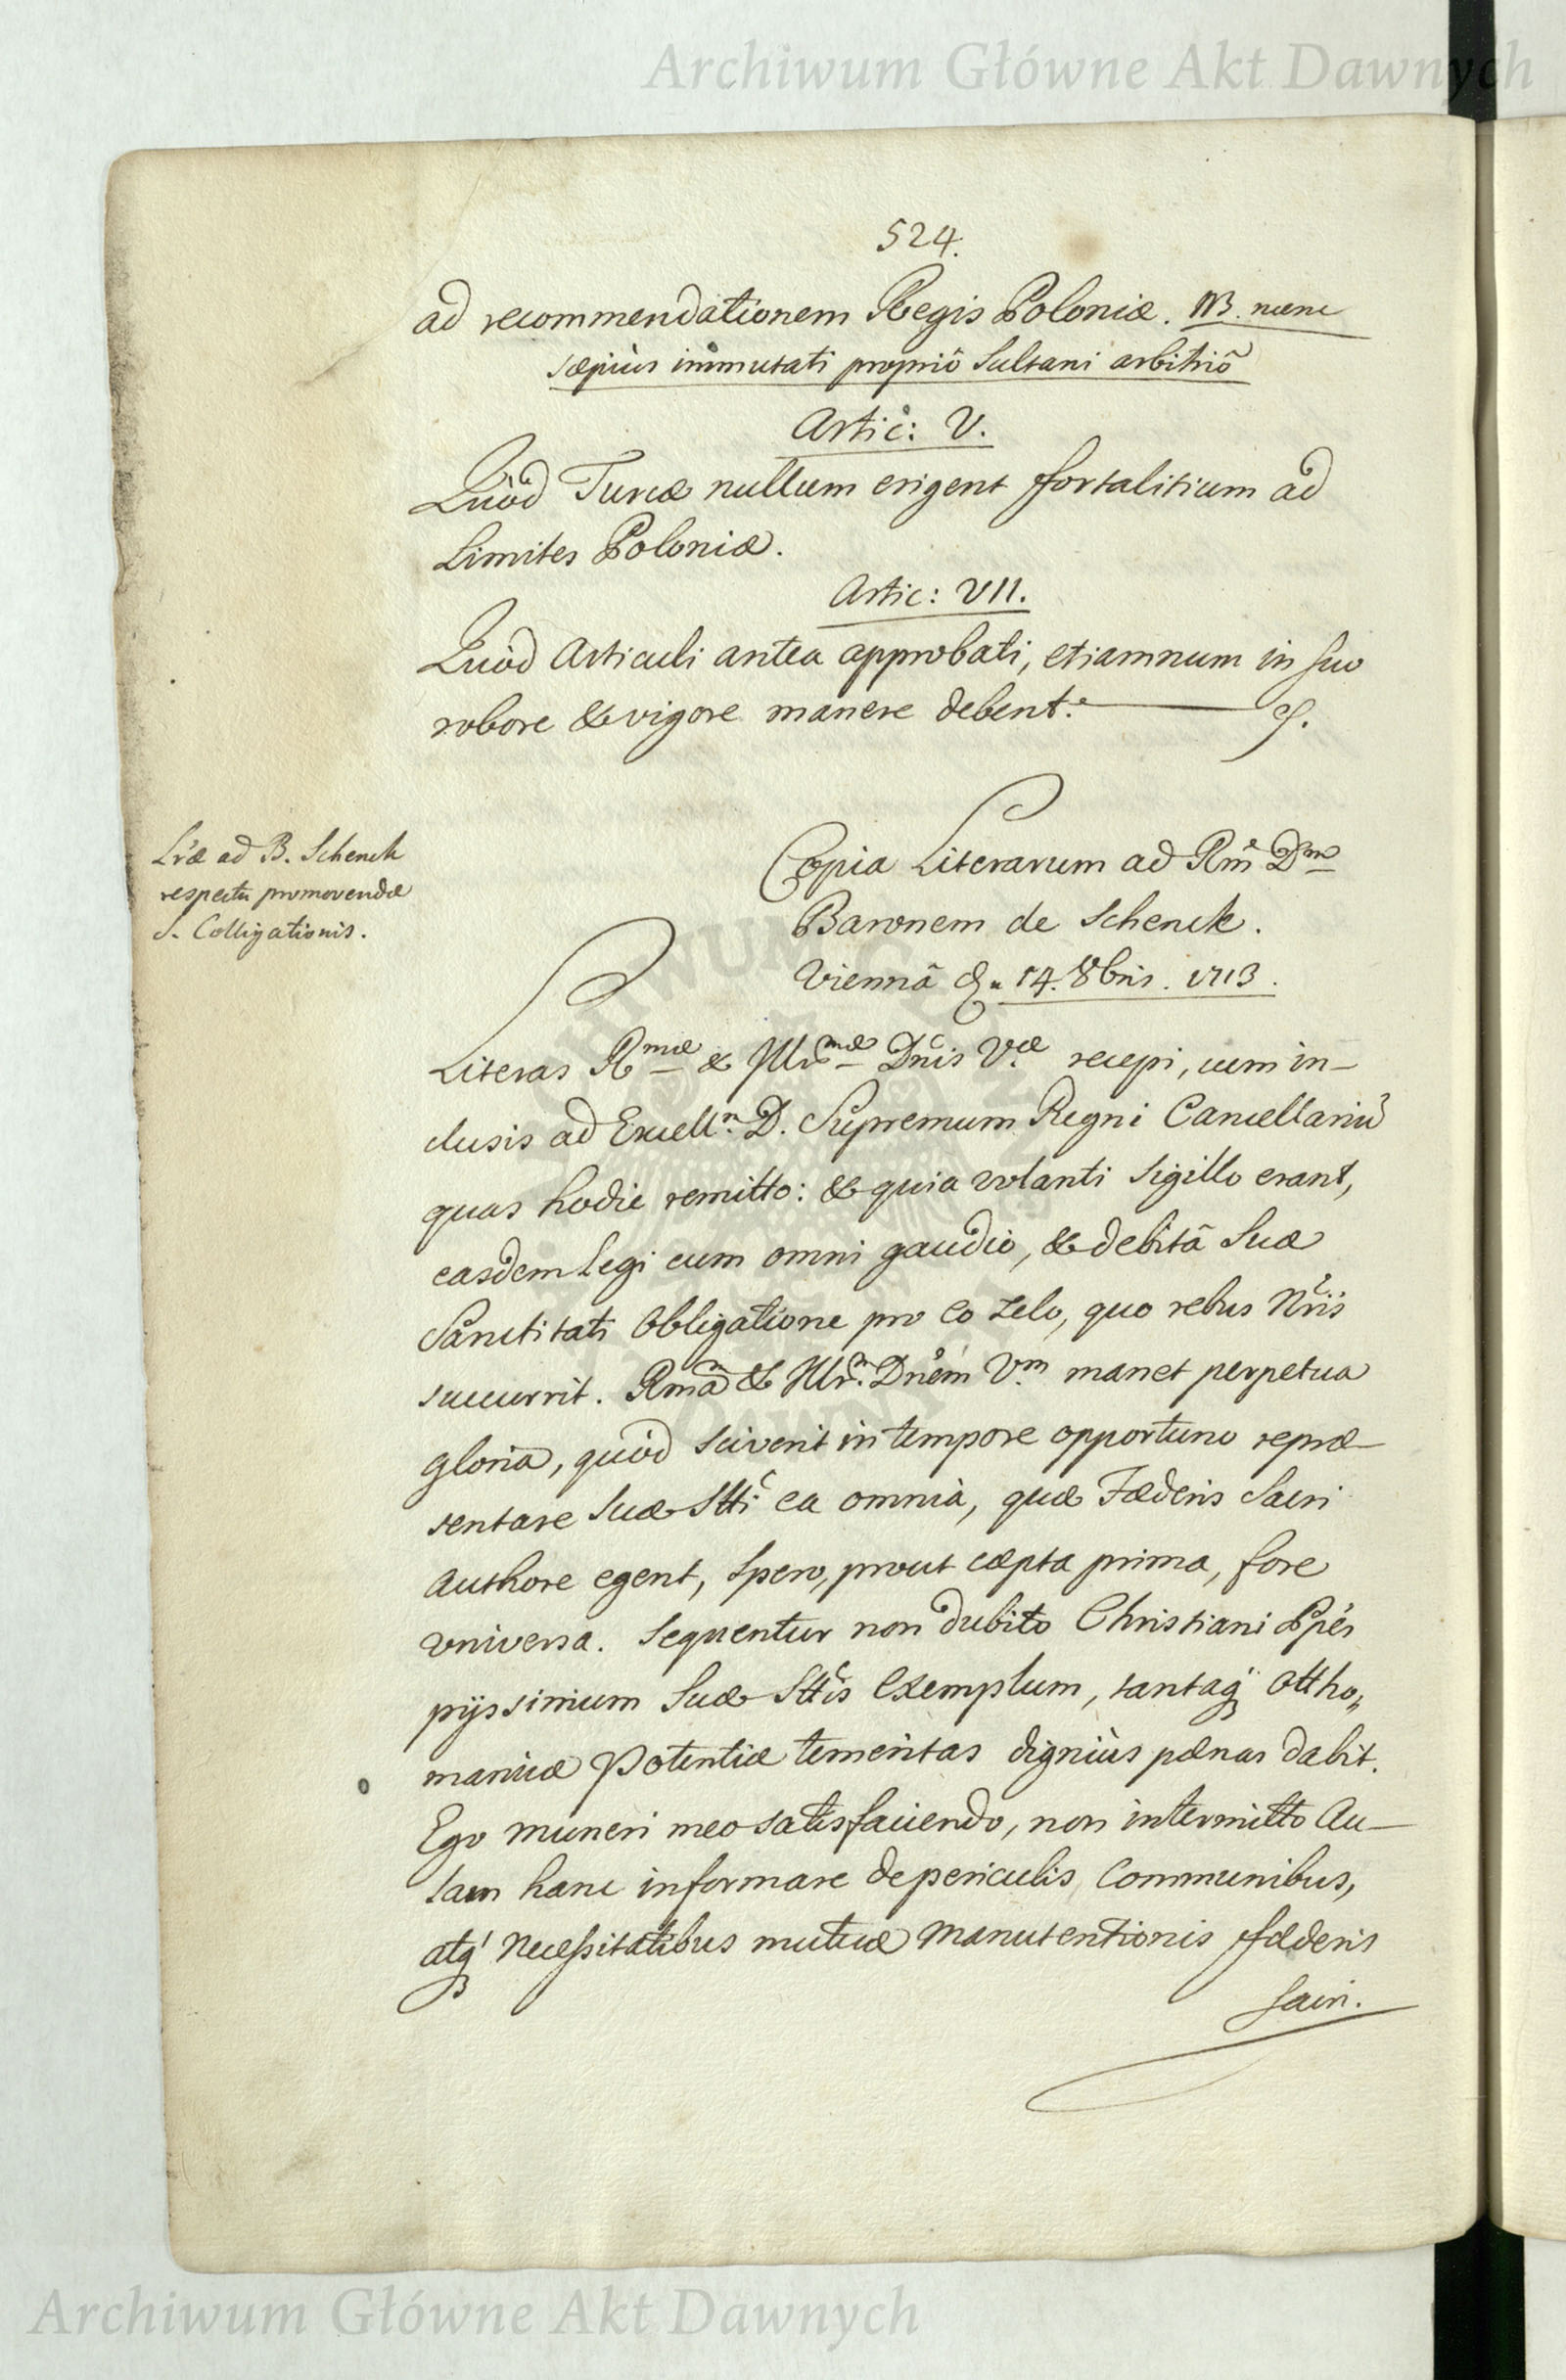 Archiwum Główne Akt Dawnych
524.
ad recommendationem Regis Poloniæ. NB. nunc
sæpiùs immutati propriô Sultani arbitriô
Artic: V.
Quòd Turcæ nullum erigent fortalitium ad
Limites Poloniæ.
Artic: VII.
Quòd Articuli antea approbati, etiamnum in suo
robore & vigore manere debent.
Lræ ad B. Schenck
respectu promovendæ
S. Colligationis.
Copia Literarum ad Rm̃ Dnm
Baronem de Schenck.
Viennâ d. 14. 8bris. 1713.
Literas Rmæ & Illrmæ Dnis Væ recepi, cum in-
clusis ad Excell. D. Supremum Regni Cancellariũ
quas hodie remitto: & quia volanti Sigillo erant,
easdem legi cum omni gaudio, & debitâ Suæ
Sanctitati Obligatione pro eo zelo, quo rebus Nris
succurrit. Rmã & Illr. Dnem Vm manet perpetua
gloria, quòd sciverit in tempore opportuno repræ-
sentare Suæ Stti ea omnia, quæ Fæderis Sacri
Authore egent, spero, prout cæpta prima, fore
universa. Sequentur non dubito Christiani Ppes
pijssimum Suæ Sttis Exemplum, tantaq₃ Ottho„
manicæ Potentiæ temeritas digniùs pænas dabit.
Ego muneri meo satisfaciendo, non intermitto Au-
lam hanc informare de periculis Communibus,
atq₃ Necessitatibus mutuæ Manutentionis fæderis
Sacri.
Archiwum Główne Akt Dawnych